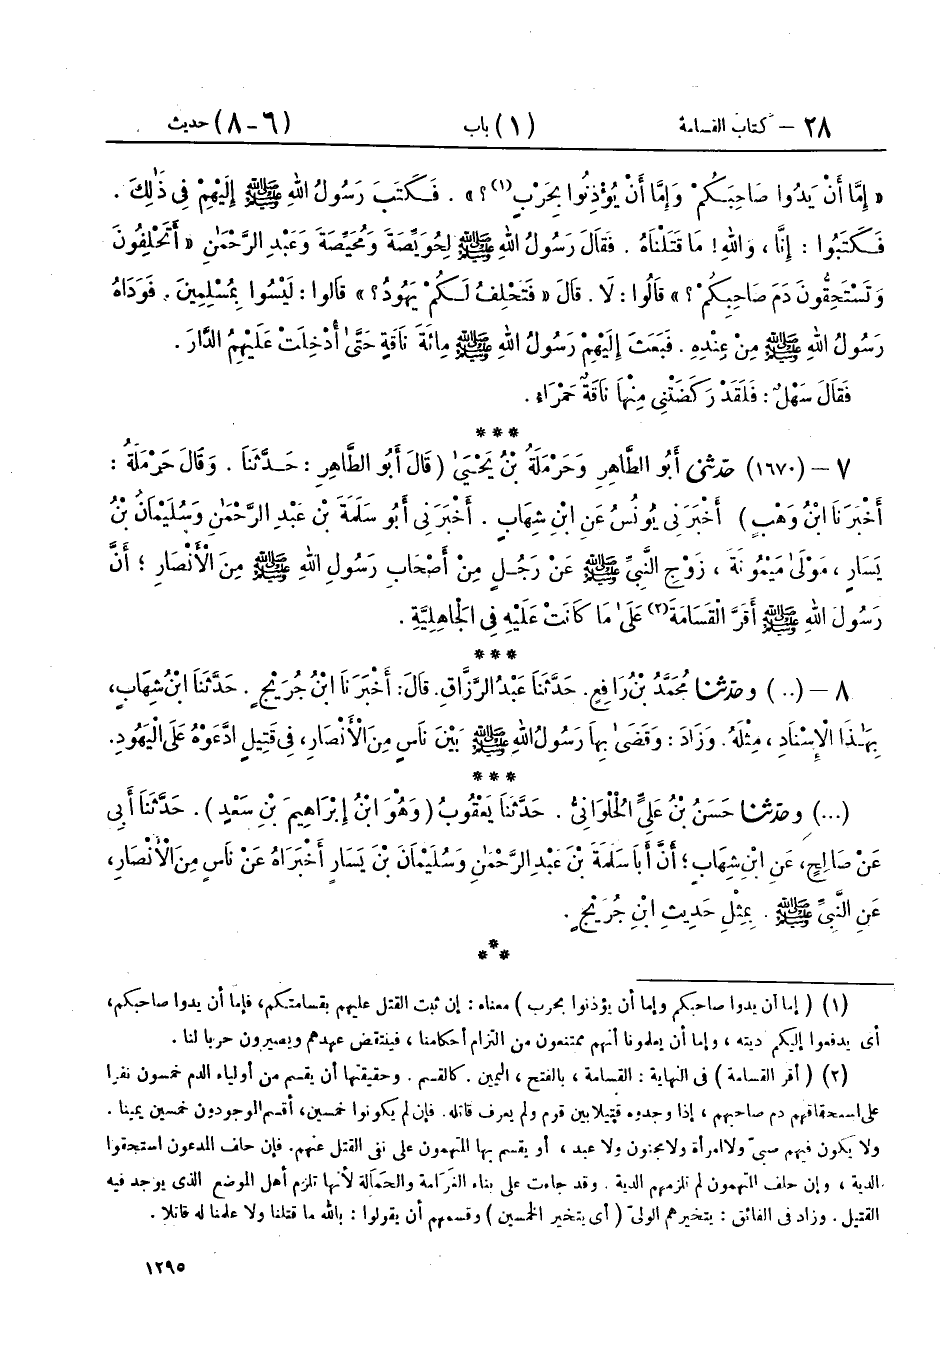 ٢٨ – كتاب القسامة (١) باب (٦–٨) حديث
« إِمَّا أَنْ يَدُوا صَاحِبَكُمْ وَإِمَّا أَنْ يُؤْذِنُوا بِحَرْبٍ(١)؟» . فَكَتَبَ رَسُولُ اللهِ ﷺ إِلَيْهِمْ فِي ذٰلِكَ .
فَكَتَبُوا : إِنَّا ، وَاللهِ! مَا قَتَلْنَاهُ . فَقَالَ رَسُولُ اللهِ ﷺ لِحُوَيِّصَةَ وَمُحَيِّصَةَ وَعَبْدِ الرَّحْمٰنِ « أَتَحْلِفُونَ
وَتَسْتَحِقُّونَ دَمَ صَاحِبِكُمْ؟ » قَالُوا : لَا . قَالَ « فَتَحْلِفُ لَكُمْ يَهُودُ؟ » قَالُوا : لَيْسُوا بِمُسْلِمِينَ . فَوَدَاهُ
رَسُولُ اللهِ ﷺ مِنْ عِنْدِهِ . فَبَعَثَ إِلَيْهِمْ رَسُولُ اللهِ ﷺ مِائَةَ نَاقَةٍ حَتَّى أُدْخِلَتْ عَلَيْهِمُ الدَّارَ .
فَقَالَ سَهْلٌ : فَلَقَدْ رَكَضَتْنِي مِنْهَا نَاقَةٌ حَمْرَاءُ .
***
٧ – (١٦٧٠) حَدَّثَنِي أَبُو الطَّاهِرِ وَحَرْمَلَةُ بْنُ يَحْيَىٰ ( قَالَ أَبُو الطَّاهِرِ : حَدَّثَنَا . وَقَالَ حَرْمَلَةُ :
أَخْبَرَنَا ابْنُ وَهْبٍ ) أَخْبَرَنِي يُونُسُ عَنِ ابْنِ شِهَابٍ . أَخْبَرَنِي أَبُو سَلَمَةَ بْنُ عَبْدِ الرَّحْمٰنِ وَسُلَيْمَانُ بْنُ
يَسَارٍ ، مَوْلَىٰ مَيْمُونَةَ ، زَوْجِ النَّبِيِّ ﷺ عَنْ رَجُلٍ مِنْ أَصْحَابِ رَسُولِ اللهِ ﷺ مِنَ الْأَنْصَارِ ؛ أَنَّ
رَسُولَ اللهِ ﷺ أَقَرَّ الْقَسَامَةَ(٢) عَلَىٰ مَا كَانَتْ عَلَيْهِ فِي الْجَاهِلِيَّةِ .
***
٨ – (..) وحَدَّثَنَا مُحَمَّدُ بْنُ رَافِعٍ. حَدَّثَنَا عَبْدُ الرَّزَّاقِ. قَالَ: أَخْبَرَنَا ابْنُ جُرَيْجٍ. حَدَّثَنَا ابْنُ شِهَابٍ،
بِهٰذَا الْإِسْنَادِ ، مِثْلَهُ. وَزَادَ : وَقَضَىٰ بِهَا رَسُولُ اللهِ ﷺ بَيْنَ نَاسٍ مِنَ الْأَنْصَارِ، فِي قَتِيلٍ ادَّعَوْهُ عَلَى الْيَهُودِ.
***
(...) وحَدَّثَنَا حَسَنُ بْنُ عَلِيٍّ الْحُلْوَانِيُّ . حَدَّثَنَا يَعْقُوبُ ( وَهُوَ ابْنُ إِبْرَاهِيمَ بْنِ سَعْدٍ ) . حَدَّثَنَا أَبِي
عَنْ صَالِحٍ، عَنِ ابْنِ شِهَابٍ ؛ أَنَّ أَبَا سَلَمَةَ بْنَ عَبْدِ الرَّحْمٰنِ وَسُلَيْمَانَ بْنَ يَسَارٍ أَخْبَرَاهُ عَنْ نَاسٍ مِنَ الْأَنْصَارِ،
عَنِ النَّبِيِّ ﷺ . بِمِثْلِ حَدِيثِ ابْنِ جُرَيْجٍ .
***
(١) ( إما أن يدوا صاحبكم وإما أن يؤذنوا بحرب ) معناه : إن ثبت القتل عليهم بقسامتكم، فإما أن يدوا صاحبكم،
أى يدفعوا إليكم ديته ، وإما أن يعلمونا أنهم ممتنعون من التزام أحكامنا ، فينتقض عهدهم ويصيرون حربا لنا .
(٢) ( أقر القسامة ) فى النهاية : القسامة ، بالفتح ، اليمين . كالقسم . وحقيقتها أن يقسم من أولياء الدم خمسون نفرا
على استحقاقهم دم صاحبهم ، إذا وجدوه قتيلا بين قوم ولم يعرف قاتله. فإن لم يكونوا خمسين، أقسم الموجودون خمسين يمينا .
ولا يكون فيهم صبىّ ولا امرأة ولا مجنون ولا عبد ، أو يقسم بها المتهمون على نفى القتل عنهم. فإن حلف المدعون استحقوا
الدية ، وإن حلف المتهمون لم تلزمهم الدية . وقد جاءت على بناء الغرامة والحمالة لأنها تلزم أهل الموضع الذى يوجد فيه
القتيل . وزاد فى الفائق : يتخيرهم الولىّ ( أى يتخير الخمسين ) وقسمهم أن يقولوا : بالله ما قتلنا ولا علمنا له قاتلا .
١٢٩٥